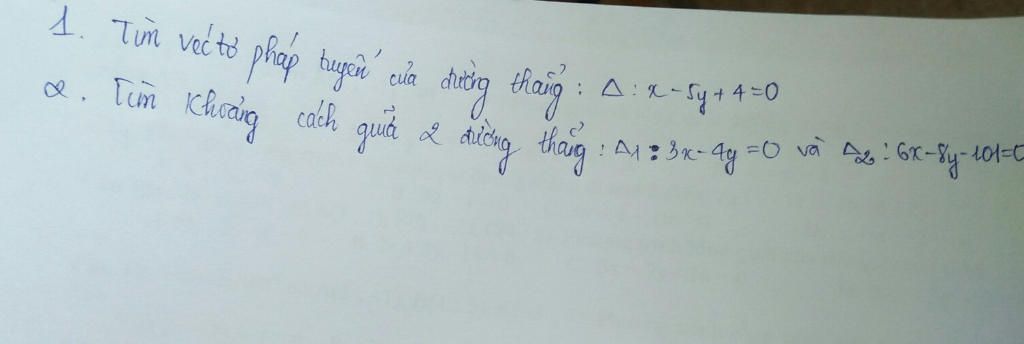 1. Tìm véctơ pháp tuyến của đường thẳng: Δ: x - 5y + 4 = 0
2. Tìm Khoảng cách giữa 2 đường thẳng: Δ1: 3x - 4y = 0 và Δ2: 6x - 8y - 101 = 0